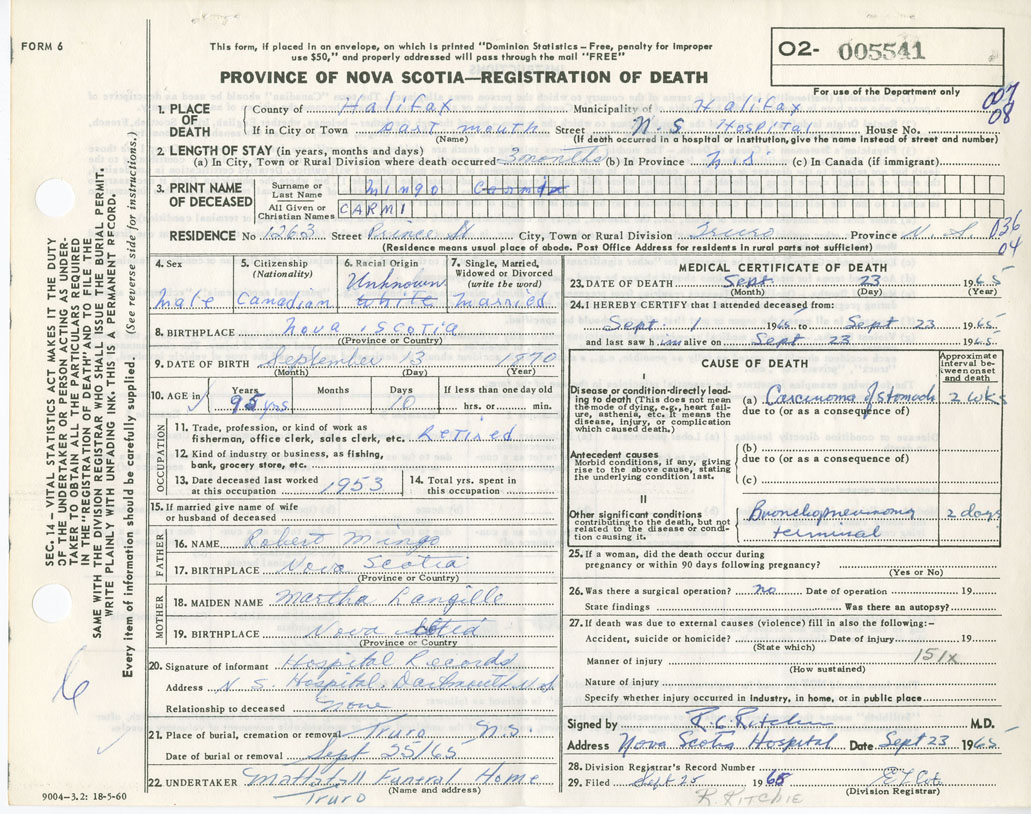 FORM 6
This form, if placed in an envelope, on which is printed "Dominion Statistics – Free, penalty for improper
use $50," and properly addressed will pass through the mail "FREE"
PROVINCE OF NOVA SCOTIA—REGISTRATION OF DEATH
O2- 005541
For use of the Department only
007
08
1. PLACE OF DEATH
County of Halifax Municipality of Halifax
If in City or Town Dartmouth Street N.S Hospital House No.
(Name) (If death occurred in a hospital or institution, give the name instead of street and number)
2. LENGTH OF STAY (in years, months and days)
(a) In City, Town or Rural Division where death occurred 3 months (b) In Province N.S. (c) In Canada (if immigrant)
3. PRINT NAME OF DECEASED
Surname or Last Name Mingo
All Given or Christian Names CARMI
RESIDENCE No 1263 Street Prince St City, Town or Rural Division Truro Province N.S.
036
04
(Residence means usual place of abode. Post Office Address for residents in rural parts not sufficient)
4. Sex
male
5. Citizenship
(Nationality)
Canadian
6. Racial Origin
Unknown
White
7. Single, Married,
Widowed or Divorced
(write the word)
married
8. BIRTHPLACE Nova Scotia
(Province or Country)
9. DATE OF BIRTH September 13 1870
(Month) (Day) (Year)
10. AGE in
Years Months Days If less than one day old
95 yrs. 10 hrs. or min.
OCCUPATION
11. Trade, profession, or kind of work as
fisherman, office clerk, sales clerk, etc. Retired
12. Kind of industry or business, as fishing,
bank, grocery store, etc.
13. Date deceased last worked
at this occupation 1953
14. Total yrs. spent in
this occupation
15. If married give name of wife
or husband of deceased
FATHER
16. NAME Robert Mingo
17. BIRTHPLACE Nova Scotia
(Province or Country)
MOTHER
18. MAIDEN NAME Martha Langille
19. BIRTHPLACE Nova Scotia
(Province or Country)
20. Signature of informant Hospital Records
Address N.S. Hospital. Dartmouth N.S
Relationship to deceased none
21. Place of burial, cremation or removal Truro N.S.
Date of burial or removal Sept 25/65
22. UNDERTAKER Mattatall Funeral Home
(Name and address)
Truro
9004-3.2: 18-5-60
MEDICAL CERTIFICATE OF DEATH
23. DATE OF DEATH Sept 23 1965
(Month) (Day) (Year)
24. I HEREBY CERTIFY that I attended deceased from:
Sept. 1 1965 to Sept 23 1965
and last saw him alive on Sept 23 1965
CAUSE OF DEATH
Approximate
interval be-
tween onset
and death
I
Disease or condition directly lead-
ing to death (This does not mean
the mode of dying, e.g., heart fail-
ure, asthenia, etc. It means the
disease, injury, or complication
which caused death.)
(a) Carcinoma of stomach 2 wks
due to (or as a consequence of)
Antecedent causes
Morbid conditions, if any, giving
rise to the above cause, stating
the underlying condition last.
(b)
due to (or as a consequence of)
(c)
II
Other significant conditions
contributing to the death, but not
related to the disease or condi-
tion causing it.
Bronchopneumonia 2 days
terminal
25. If a woman, did the death occur during
pregnancy or within 90 days following pregnancy?
(Yes or No)
26. Was there a surgical operation? no Date of operation 19
State findings Was there an autopsy?
27. If death was due to external causes (violence) fill in also the following:–
Accident, suicide or homicide? Date of injury 19
(State which)
151x
Manner of injury
(How sustained)
Nature of injury
Specify whether injury occurred in industry, in home, or in public place
Signed by R. C. Ritchie M.D.
Address Nova Scotia Hospital Date Sept 23 1965
28. Division Registrar's Record Number
29. Filed Sept 25 1965
(Division Registrar)
R. RITCHIE
SEC. 14 – VITAL STATISTICS ACT MAKES IT THE DUTY
OF THE UNDERTAKER OR PERSON ACTING AS UNDER-
TAKER TO OBTAIN ALL THE PARTICULARS REQUIRED
IN THE "REGISTRATION OF DEATH" AND TO FILE THE
SAME WITH THE DIVISION REGISTRAR WHO SHALL ISSUE THE BURIAL PERMIT.
WRITE PLAINLY WITH UNFADING INK. THIS IS A PERMANENT RECORD.
Every item of information should be carefully supplied. (See reverse side for instructions.)